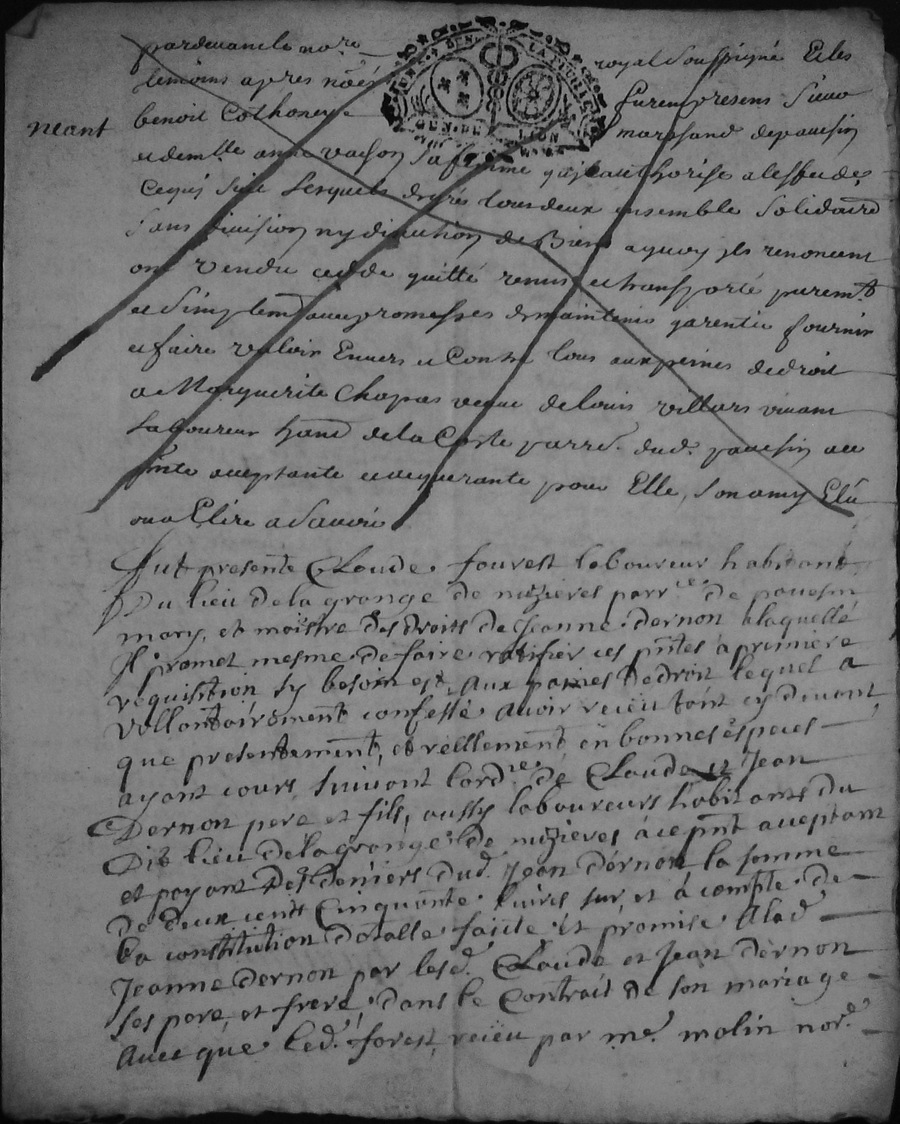 pardevant le no.re royal soussigné Et les
temoins apres nōés furent presens sieur
benoit Cothonet marchand de pavesin
neant
et demlle anne vachon sa femme qu'il authorise a lesfet des
Ce qui suit Lesquels de grés tous deux ensemble solidaire
sans division ny discution de Biens a quoy ils renoncent
ont vendu cedde quitté remis et transporté purem.t
et simplemt avec promesses de maintenir garentir fournir
et faire valoir Envers et Contre tous aux peines de droit
a Marguerite Chapas veuve de louis villars vivant
Laboureur hant de la Coste parre. dud. pavesin au
pnte aceptante et aquerante pour Elle, son amy Elu
ou a Elire a savoir
Fut présent Claude fourest laboureur habitant
Du lieu de la grange de mizieres parr.le de pavesin
mary, et maistre des droits de Jeanne dernon a laquelle
Il promet mesme de faire ratifier ces pntes a premiere
requisition sy besoin est, aux paines de droit lequel a
vollontairement confessé avoir reçeu tant cy devant
que presentement, et réellement en bonnes especes
ayant cours suivant lord.ce de Claude et Jean
Dernon pere et fils, aussy laboureurs habitants du
Dit lieu de la grange de mizieres a ce pnt aceptant
et payant des deniers dud. Jean dernon la somme
de deux cents Cinquante livres sur, et a compte de
la constitution dotalle faitte et promise a lad.
Jeanne dernon par lesd. Claude et Jean dernon
ses pere, et frere, dans le Contrait de son mariage
avec que led. forest, reçeu par me. molin nor.e